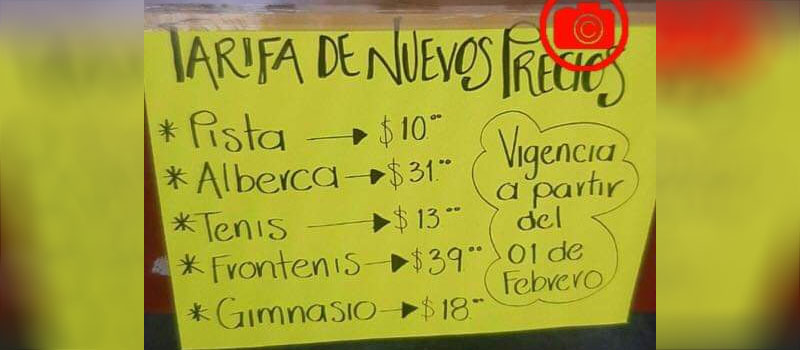 TARIFA DE NUEVOS PRECIOS
* Pista → $10.ºº
* Alberca → $31.ºº
* Tenis → $13ºº
* Frontenis → $39ºº
* Gimnasio → $18.ºº
Vigencia
a partir
del
01 de
Febrero
©